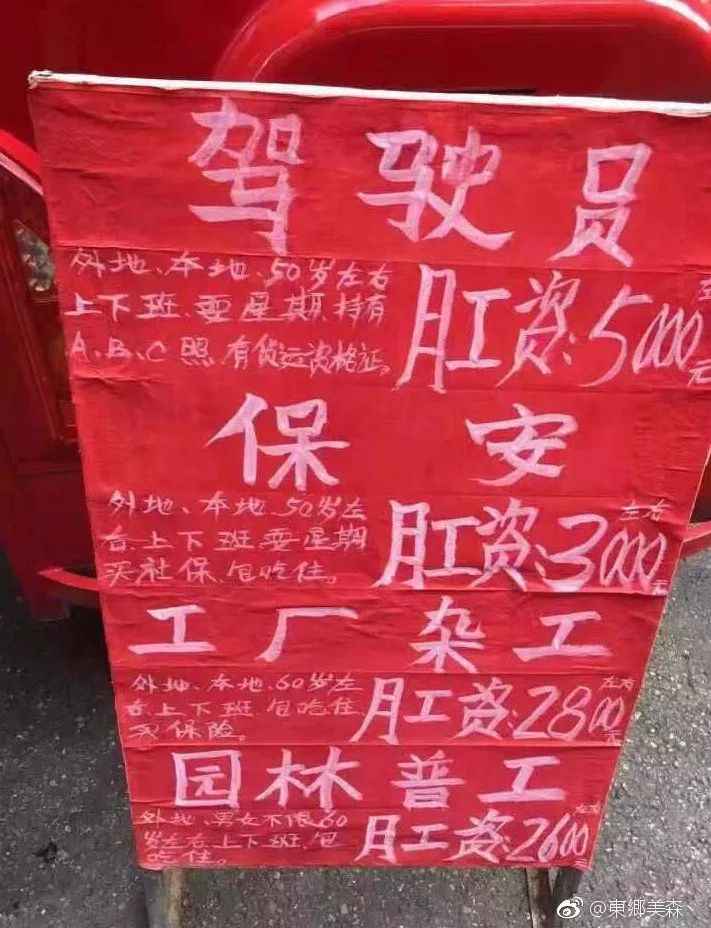 驾驶员
外地、本地、50岁左右
上下班、耍星期、持有
A、B、C照、有货运资格证。
月工资:5000左右元
保安
外地、本地、50岁左
右、上下班、耍星期
买社保、包吃住。
月工资:3000左右元
工厂杂工
外地、本地、60岁左
右、上下班、包吃住
买保险。
月工资:2800左右元
园林普工
外地、男女不限60
岁左右、上下班、包
吃住。
月工资:2600左右元
@東郷美森丶